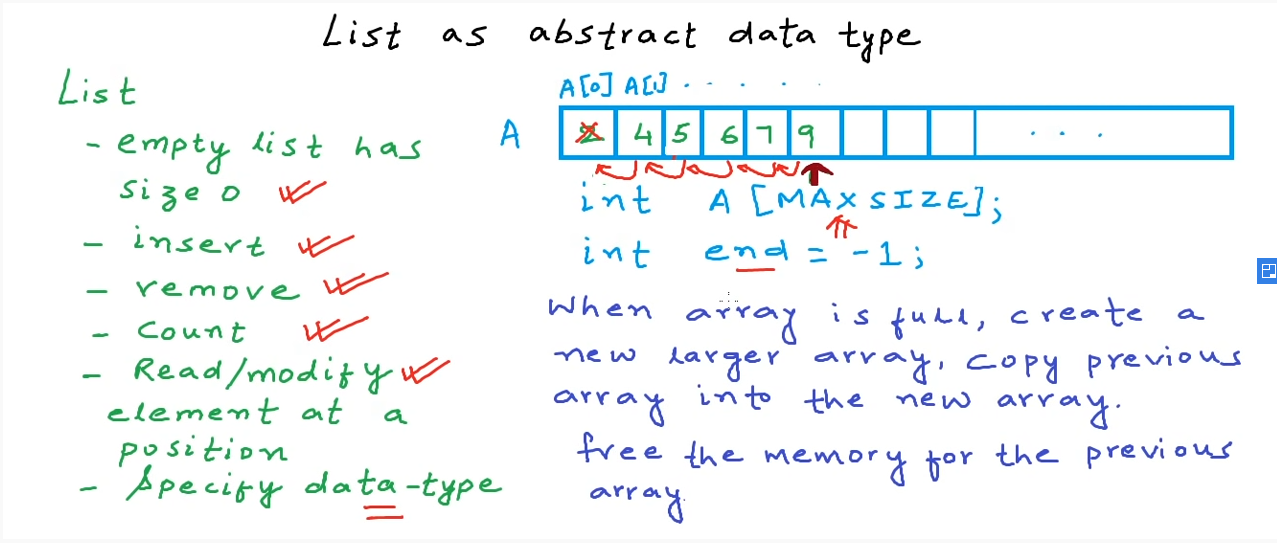 List as abstract data type
List
- empty list has
size 0
- insert
- remove
- count
- Read/modify
element at a
position
- Specify data-type
A[0] A[1] . . . . .
A 2 4 5 6 7 9 . . .
int A [MAXSIZE];
int end = -1;
When array is full, create a
new larger array, copy previous
array into the new array.
free the memory for the previous
array.